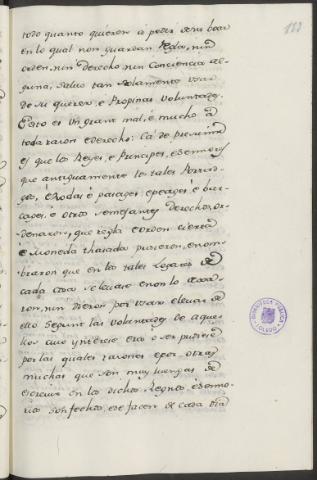 113
todo quanto quieren a pedir demandar
en lo qual non guardan Regla, nin
orden, nin derecho, nin Conciencia al-
guna, salvo tan solamente usar
de su querer, e Propinas voluntades.
Esto es un grant mal, e mucho a
toda razon e derecho: Ca de presumir
es que los Reyes, e Principes, e Señores
que antiguamente los tales Portad-
gos, e Rodas e pasages e peages e bar-
cages, e otros semejantes derechos, or-
denaron, que regla e orden cierta
e Moneda thasada pusieron, e nom-
braron que en los tales Logares de
cada cosa se levase e non lo dexa-
ron, nin dieron por usar e levar de
ello segunt las voluntades de aque-
llos cuio interese era o ser pudiese
por las quales razones e por otras
muchas que son muy luengas de
escreuir en los dichos Regnos, e Seño-
rios son fechos, e se facen de cada dia
BIBLIOTECA PUBLICA
TOLEDO